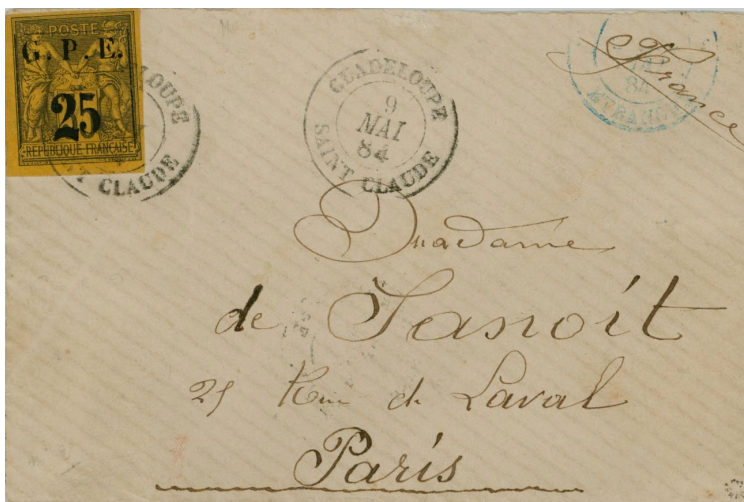 POSTE
G. P. E.
25
RÉPUBLIQUE FRANÇAISE
LOUPE
T CLAUDE
GUADELOUPE
9
MAI
84
SAINT CLAUDE
84
France
Madame
de Sanoit
25 Rue de Laval
Paris